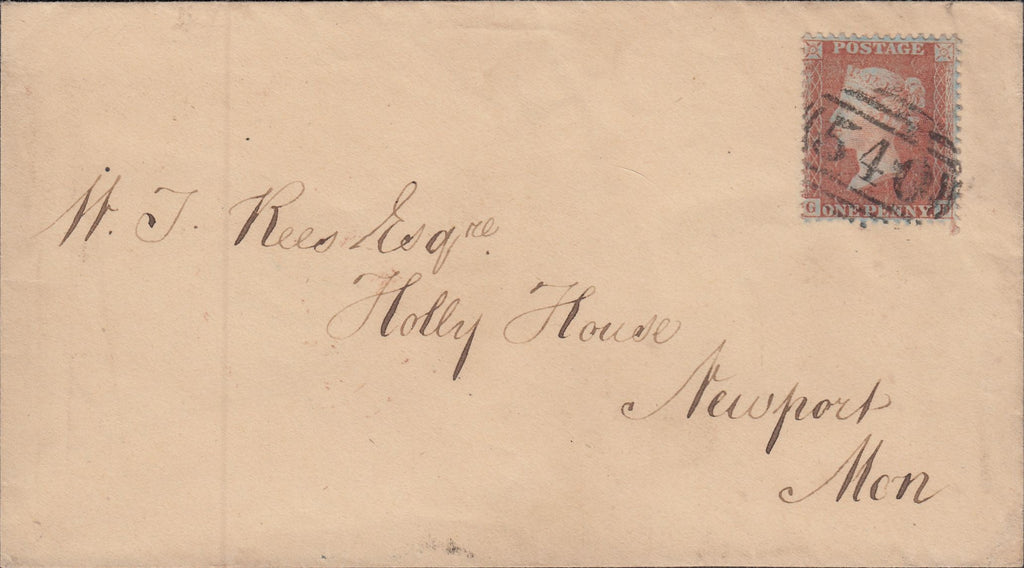 POSTAGE
540
G ONE PENNY
W. T. Rees Esqre
Holly House
Newport
Mon